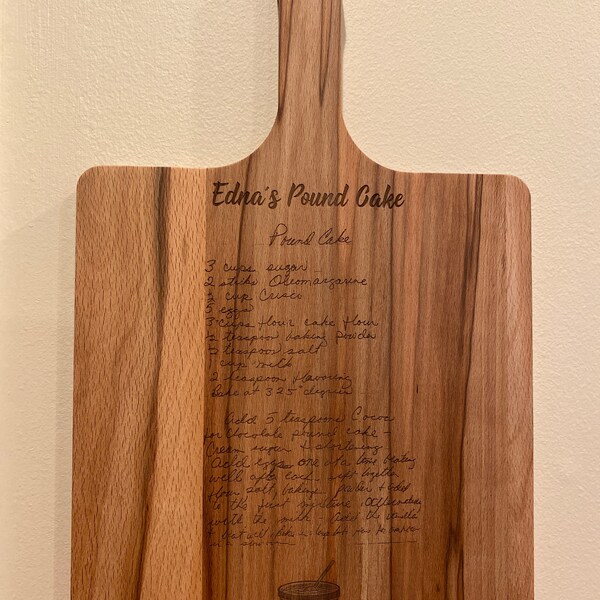 Edna's Pound Cake
Pound Cake
3 cups sugar
2 sticks Oleomargarine
cup Crisco
5 eggs
3 cups flour cake flour
teaspoon baking powder
5 teaspoon salt
cup milk
2 teaspoon flavoring
Bake at 325° degrees
Add 5 teaspoons Cocoa
for chocolate pound cake -
Cream sugar + shortening
Add eggs one at a time beating
well after each. sift together
flour salt baking powder + add
to the first mixture alternating
with the milk - add the vanilla